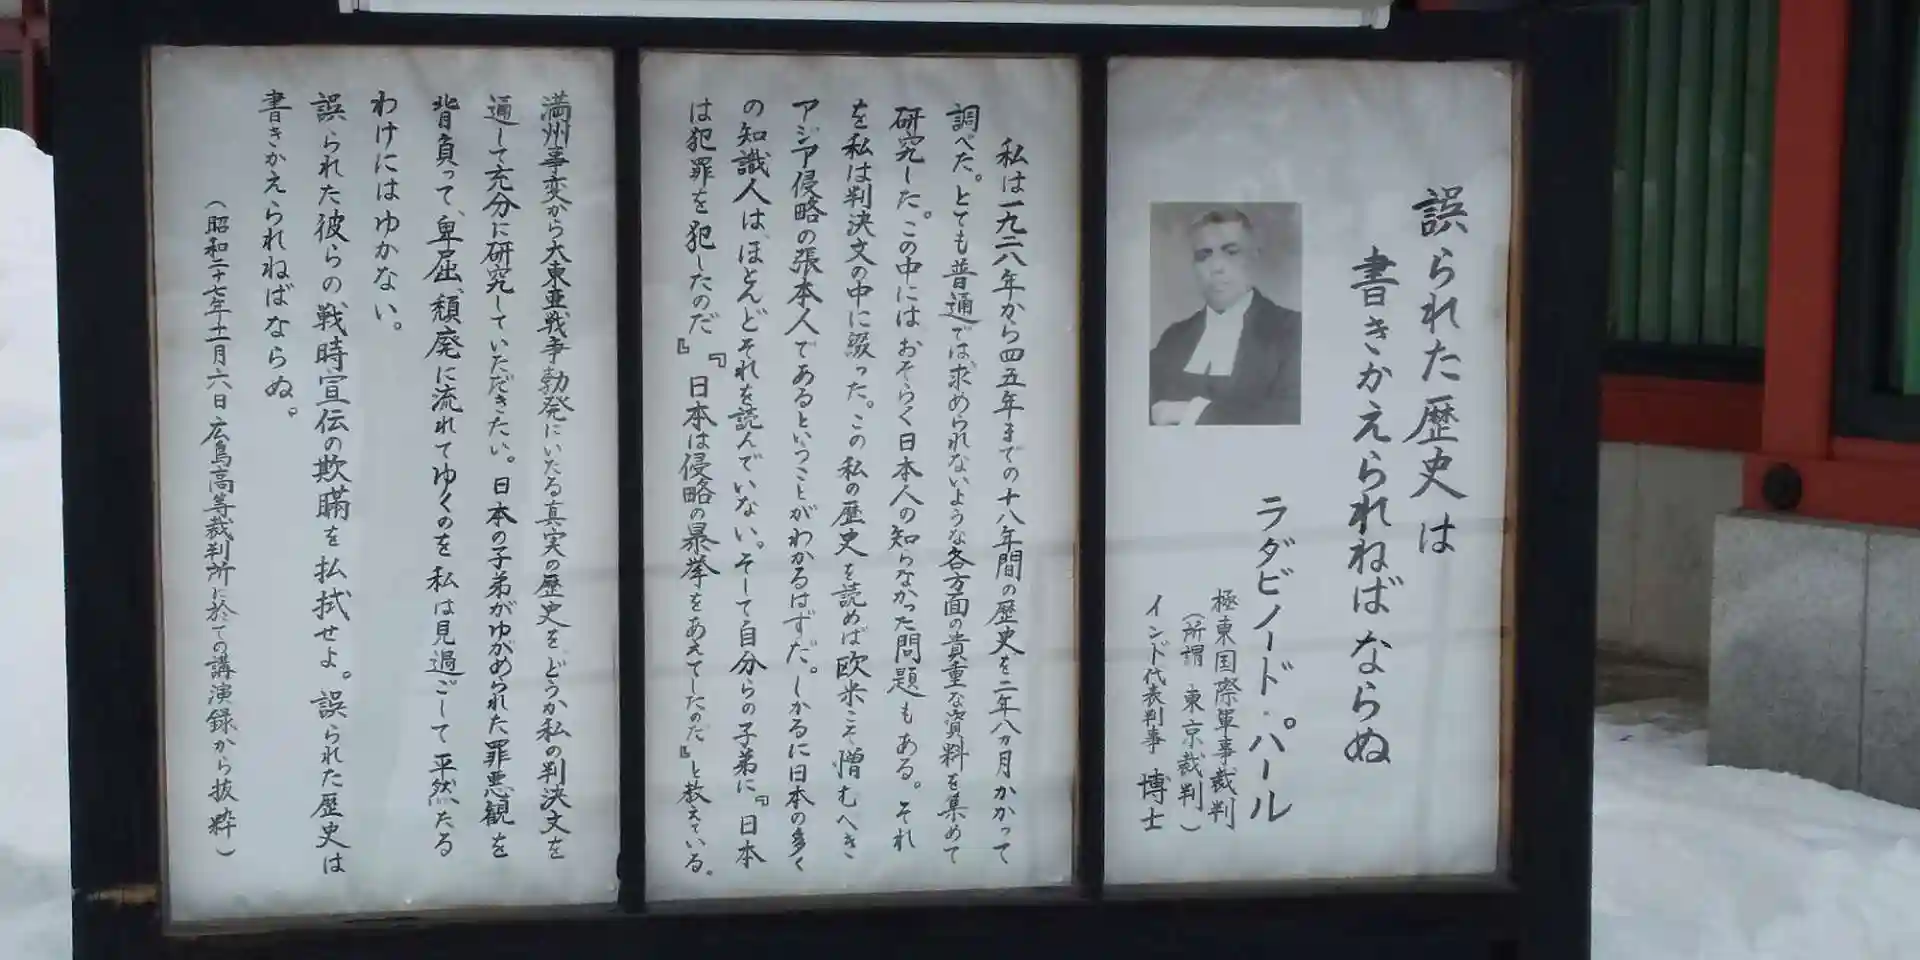 誤られた歴史は
書きかえられねばならぬ
ラダビノード・パール
極東国際軍事裁判
（所謂 東京裁判）
インド代表判事 博士
私は一九二八年から四五年までの十八年間の歴史を二年八ヵ月かかって
調べた。とても普通では求められないような各方面の貴重な資料を集めて
研究した。この中にはおそらく日本人の知らなかった問題もある。それ
を私は判決文の中に綴った。この私の歴史を読めば欧米こそ憎むべき
アジア侵略の張本人であるということがわかるはずだ。しかるに日本の多く
の知識人は、ほとんどそれを読んでいない。そして自分らの子弟に『日本
は犯罪を犯したのだ』『日本は侵略の暴挙をあえてしたのだ』と教えている。
満州事変から大東亜戦争勃発にいたる真実の歴史を、どうか私の判決文を
通して充分に研究していただきたい。日本の子弟がゆがめられた罪悪観を
背負って、卑屈、頽廃に流れてゆくのを私は見過ごして平然たる
わけにはゆかない。
誤られた彼らの戦時宣伝の欺瞞を払拭せよ。誤られた歴史は
書きかえられねばならぬ。
（昭和二十七年十一月六日広島高等裁判所に於ての講演録から抜粋）